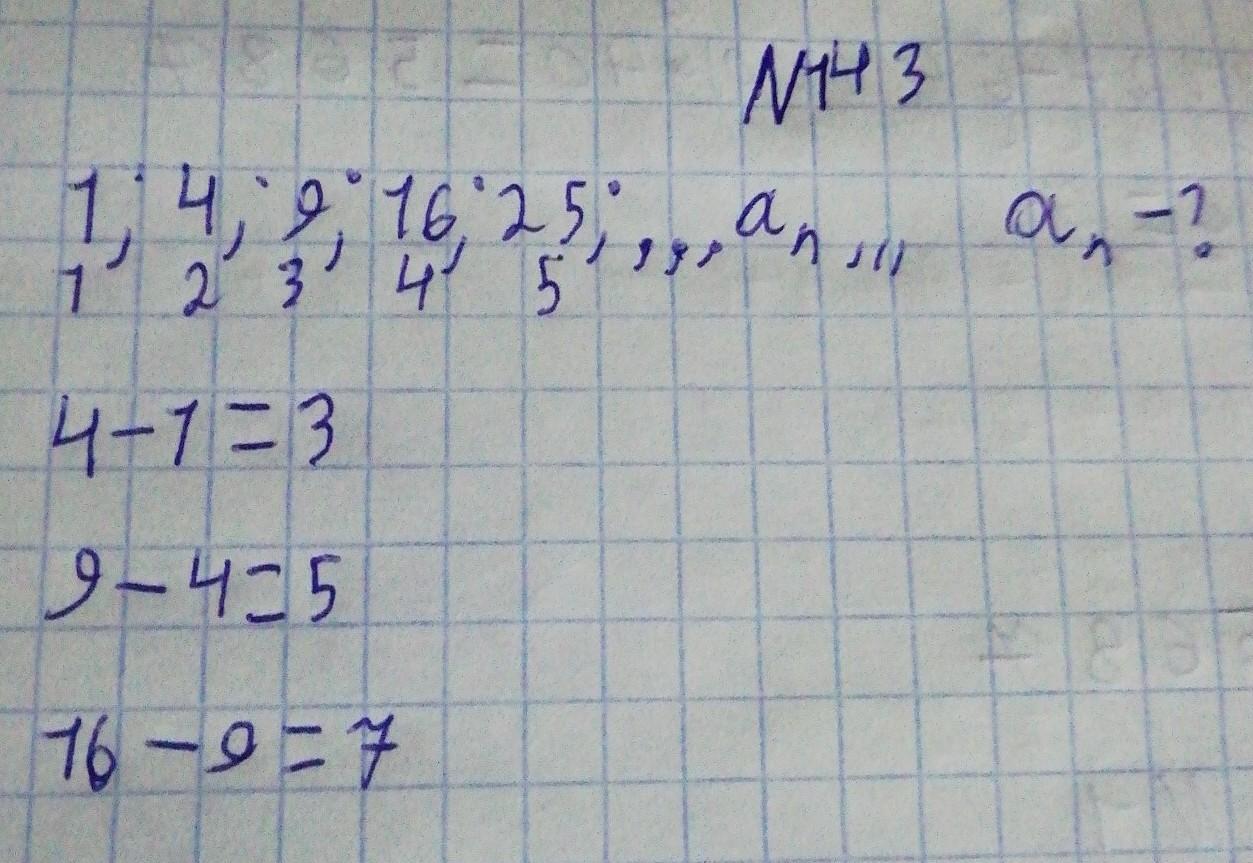 N143
1, 4, 9, 16, 25, ,,,aₙ,,, aₙ-?
1 2 3 4 5
4-1=3
9-4=5
16-9=7